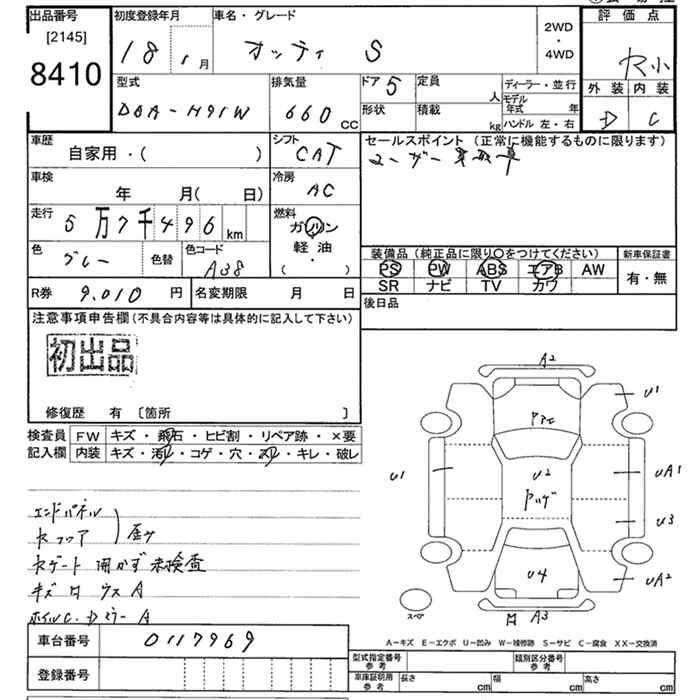 出品番号 初度登録年月 車名・グレード 評価点
[2145]
8410
18 1月 オッティ S
2WD
・
4WD
外装 内装
D C
型式 排気量 ドア 5 定員 人 ディーラー・並行
DBA-H91W 660 CC 形状 積載 kg モデル年式 年
ハンドル 左・右
車歴 シフト セールスポイント (正常に機能するものに限ります)
自家用・( ) CAT ユーザー買取車
車検 冷房
年 月(日) AC
走行 燃料
5万7千496km ガソリン
軽油
( )
色 色替 色コード
グレー A38
装備品(純正品に限り○をつけてください) 新車保証書
PS PW ABS エアB AW 有・無
SR ナビ TV カワ
R券 9,010円 名変期限 月 日
後日品
注意事項申告欄(不具合内容等は具体的に記入して下さい)
初出品
修復歴 有 [箇所 ]
検査員 FW キズ・飛石・ヒビ割・リペア跡・×要
記入欄 内装 キズ・汚レ・コゲ・穴・スレ・キレ・破レ
エンドパネル
セフロア
歪み
セゲート開かず未検査
キズ ウス A
A2
U1
U1
U2
UA1
U3
U4
UA2
A3
スペア
A-キズ E-エクボ U-凹み W-補修跡 S-サビ C-腐食 XX-交換済
車台番号 0117969
登録番号
型式指定番号 参考 類別区分番号 参考
車庫証明用 参考 長さ cm 幅 cm 高さ cm